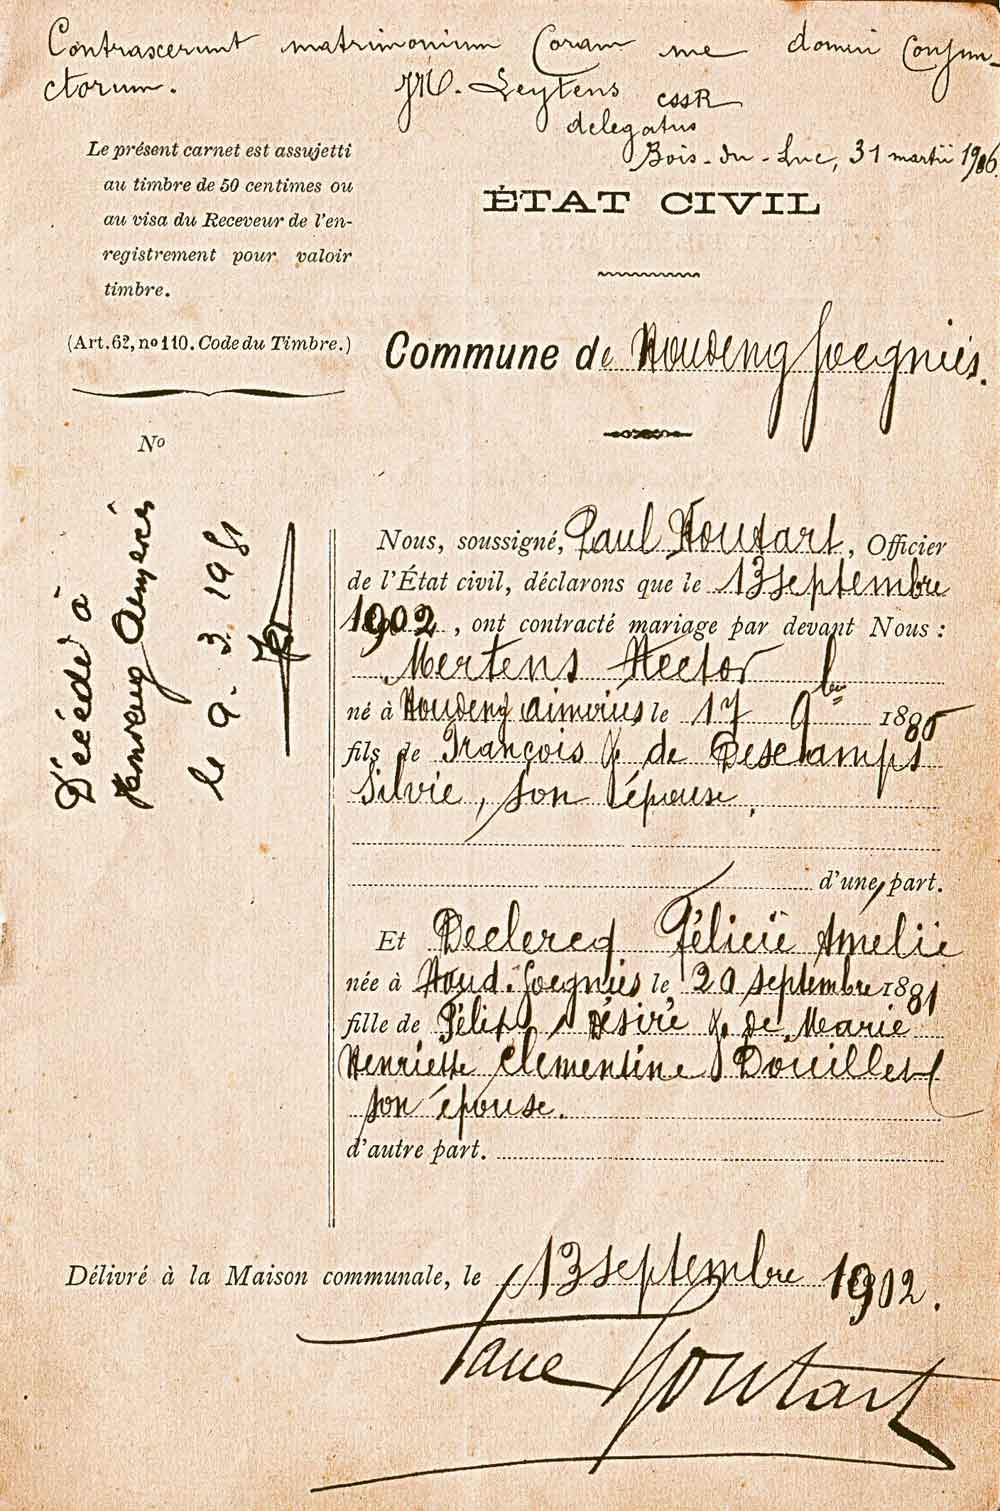 Contraxerunt matrimonium Coram me domini Conjun-
ctorum. JM. Leytens cssR
delegatus
Bois-du-Luc, 31 martii 1906
Le présent carnet est assujetti
au timbre de 50 centimes ou
au visa du Receveur de l'en-
registrement pour valoir
timbre.
(Art. 62, no 110. Code du Timbre.)
ÉTAT CIVIL
Commune de Houdeng Goegnies.
No
Décédé à
Houdeng Aimeries
le 9. 3. 1951
Nous, soussigné, Paul Houtart, Officier
de l'État civil, déclarons que le 13 septembre
1902, ont contracté mariage par devant Nous :
Mertens Hector
né à Houdeng Aimeries le 17 9bre 1880
fils de François & de Descamps
Silvie, son épouse,
d'une part.
Et Declercq Félicie Amélie
née à Houd. Goegnies le 20 septembre 1881
fille de Félix Désiré & de Marie
Henriette Clémentine Douillet
son épouse.
d'autre part.
Délivré à la Maison communale, le 13 septembre 1902.
Paul Houtart